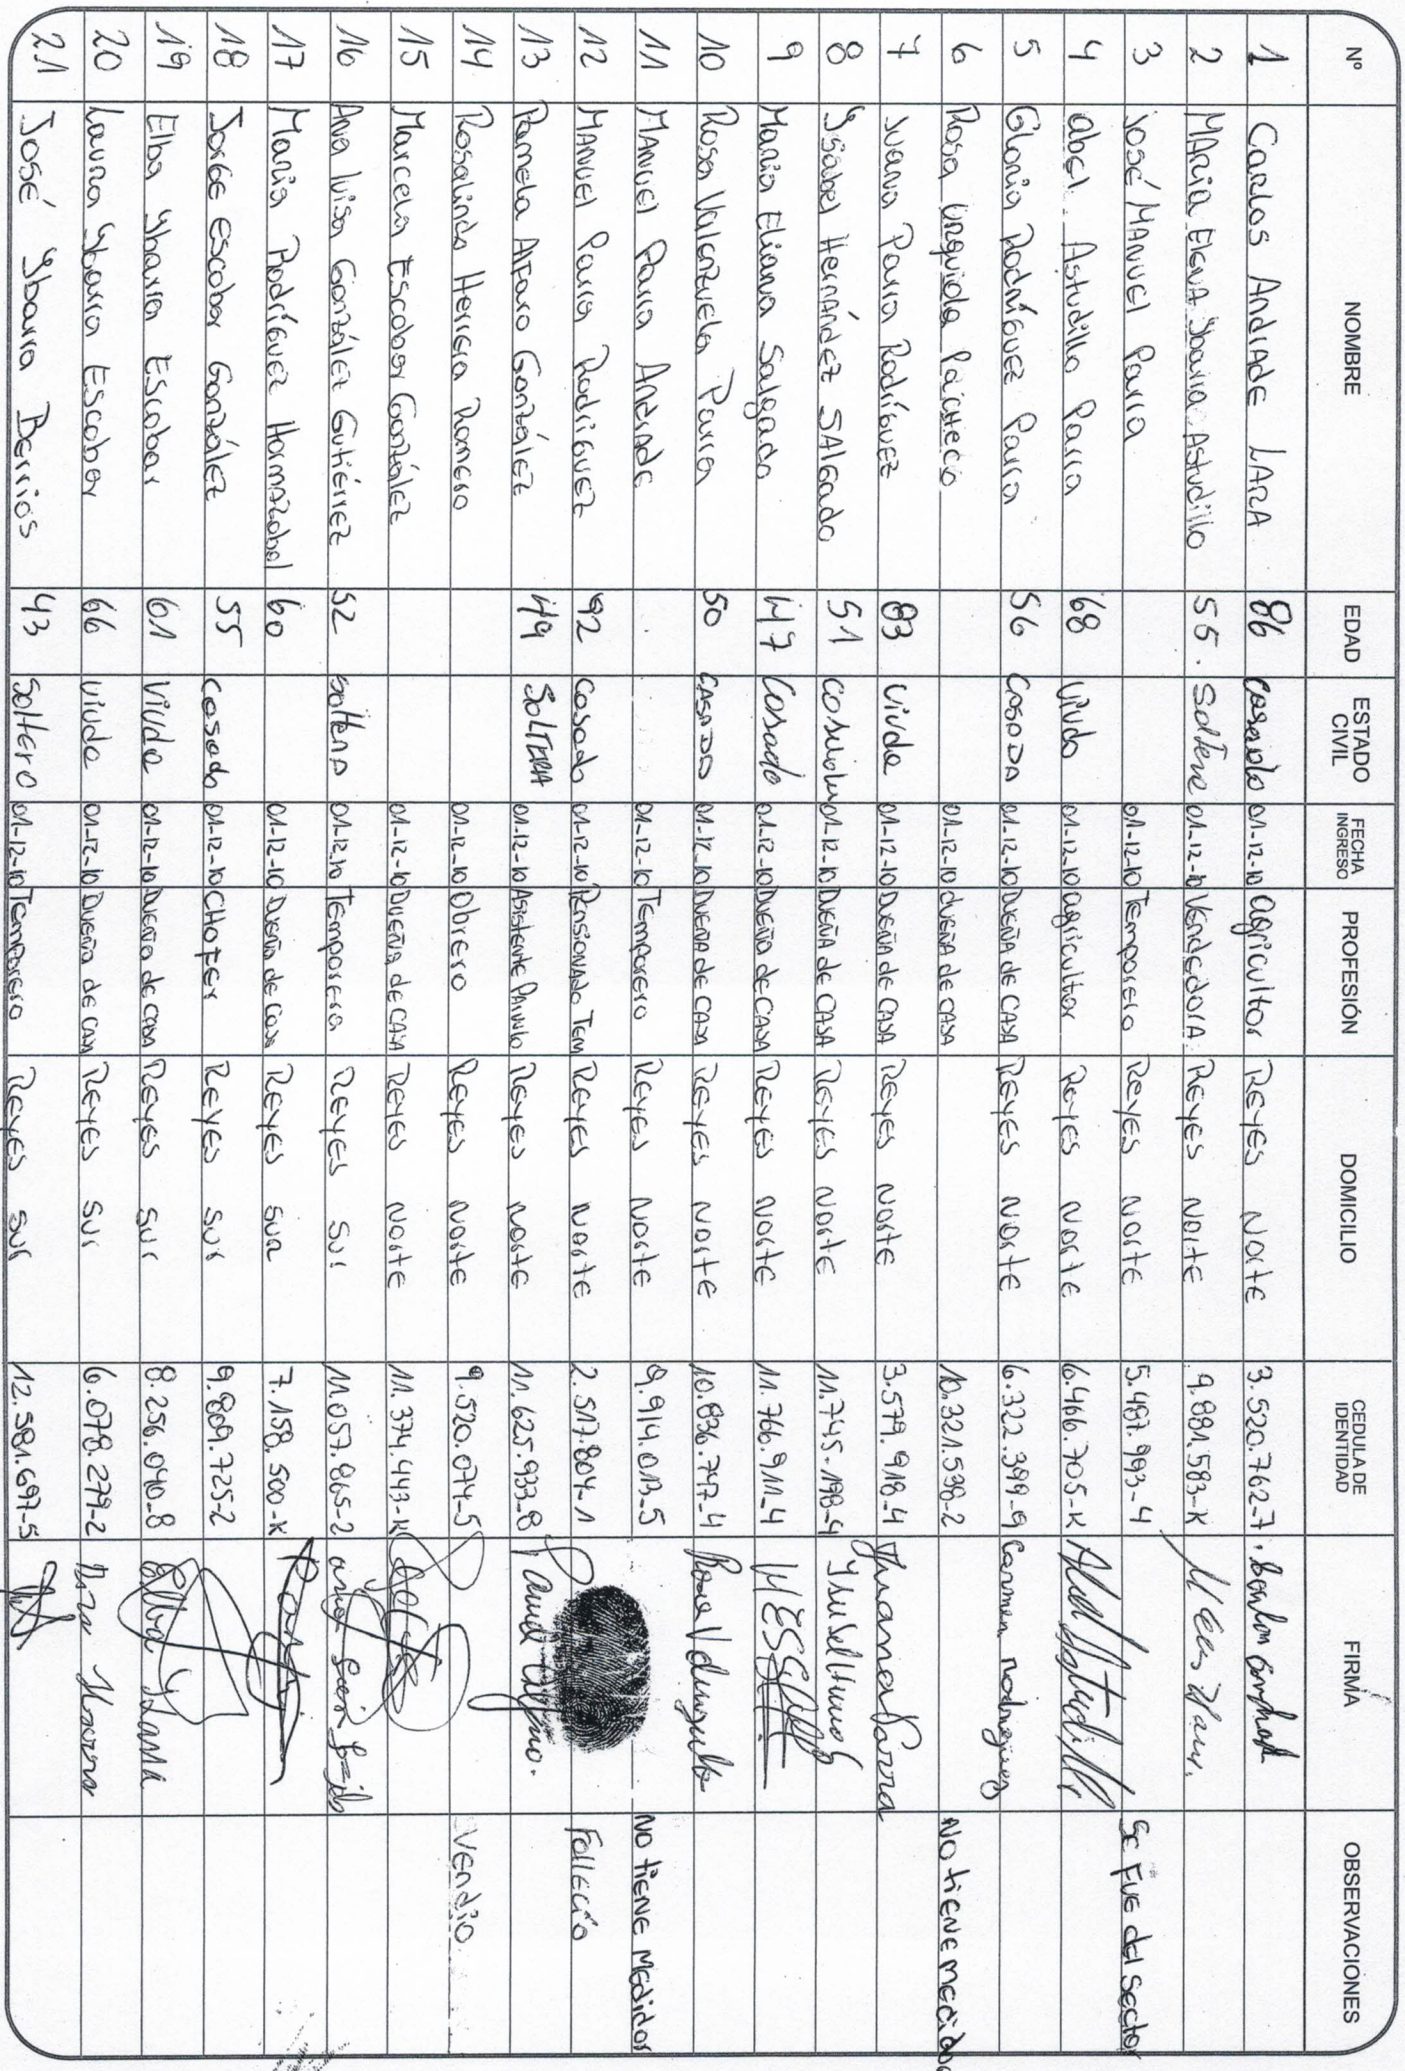 Nº NOMBRE EDAD ESTADO CIVIL FECHA INGRESO PROFESIÓN DOMICILIO CEDULA DE IDENTIDAD FIRMA OBSERVACIONES
1 Carlos Andrade Lara 86 casado 01-12-10 agricultor Reyes Norte 3.520.762-7
2 Maria Elena Ybarra Astudillo 55. Soltera 01-12-10 Vendedora Reyes Norte 9.881.583-K
3 José Manuel Parra 01-12-10 Temporero Reyes Norte 5.487.993-4 Se fue del sector
4 abel Astudillo Parra 68 Viudo 01-12-10 agricultor Reyes Norte 6.466.705-K Abel Astudillo
5 Gloria Rodríguez Parra 56 Casada 01-12-10 Dueña de casa Reyes Norte 6.322.399-9 Carmen rodriguez
6 Rosa Urquiola Pacheco 01-12-10 dueña de casa 10.321.538-2 No tiene medidor
7 Juana Parra Rodríguez 83 Viuda 01-12-10 Dueña de casa Reyes Norte 3.579.918-4 Juana Parra
8 Ysabel Hernández Salgado 51 01-12-10 Dueña de casa Reyes Norte 11.745.198-4
9 Maria Eliana Salgado 47 Casado 01-12-10 Dueña de casa Reyes Norte 11.766.911-4
10 Rosa Valenzuela Parra 50 Casado 01-12-10 Dueña de casa Reyes Norte 10.836.747-4 Rosa Valenzuela
11 Manuel Parra Andrade 01-12-10 Temporero Reyes Norte 9.914.013-5 No tiene medidor
12 Manuel Parra Rodríguez 92 Casado 01-12-10 Pensionado Tem Reyes Norte 2.517.804-1 Falleció
13 Pamela Alfaro González 49 Soltera 01-12-10 Asistente Parvulo Reyes Norte 11.625.933-8
14 Rosalindo Herrera Romero 01-12-10 Obrero Reyes Norte 9.520.074-5 Vendio
15 Marcela Escobar González 01-12-10 Dueña de casa Reyes Norte 11.374.443-K
16 Ana luisa González Gutiérrez 52 Soltera 01-12-10 Temporera Reyes Sur 11.057.865-2
17 Maria Rodríguez Hormazabal 60 01-12-10 Dueña de casa Reyes Sur 7.158.500-K
18 Jorge Escobar González 55 Casado 01-12-10 Chofer Reyes Sur 9.809.725-2
19 Elba Ybarra Escobar 61 Viuda 01-12-10 Dueña de casa Reyes Sur 8.256.040-8 Elba Ybarra
20 Laura Ybarra Escobar 66 Viuda 01-12-10 Dueña de casa Reyes Sur 6.078.279-2
21 José Ybarra Berrios 43 Soltero 01-12-10 Temporero Reyes Sur 12.581.697-5